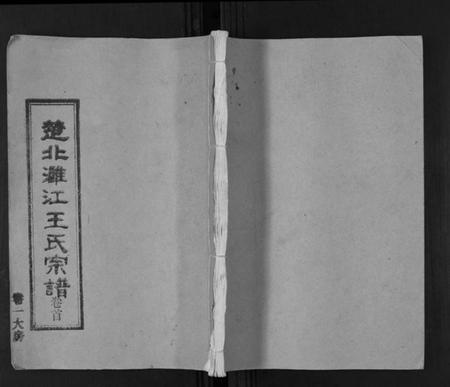 楚北灘江王氏宗譜
卷首
卷一大房